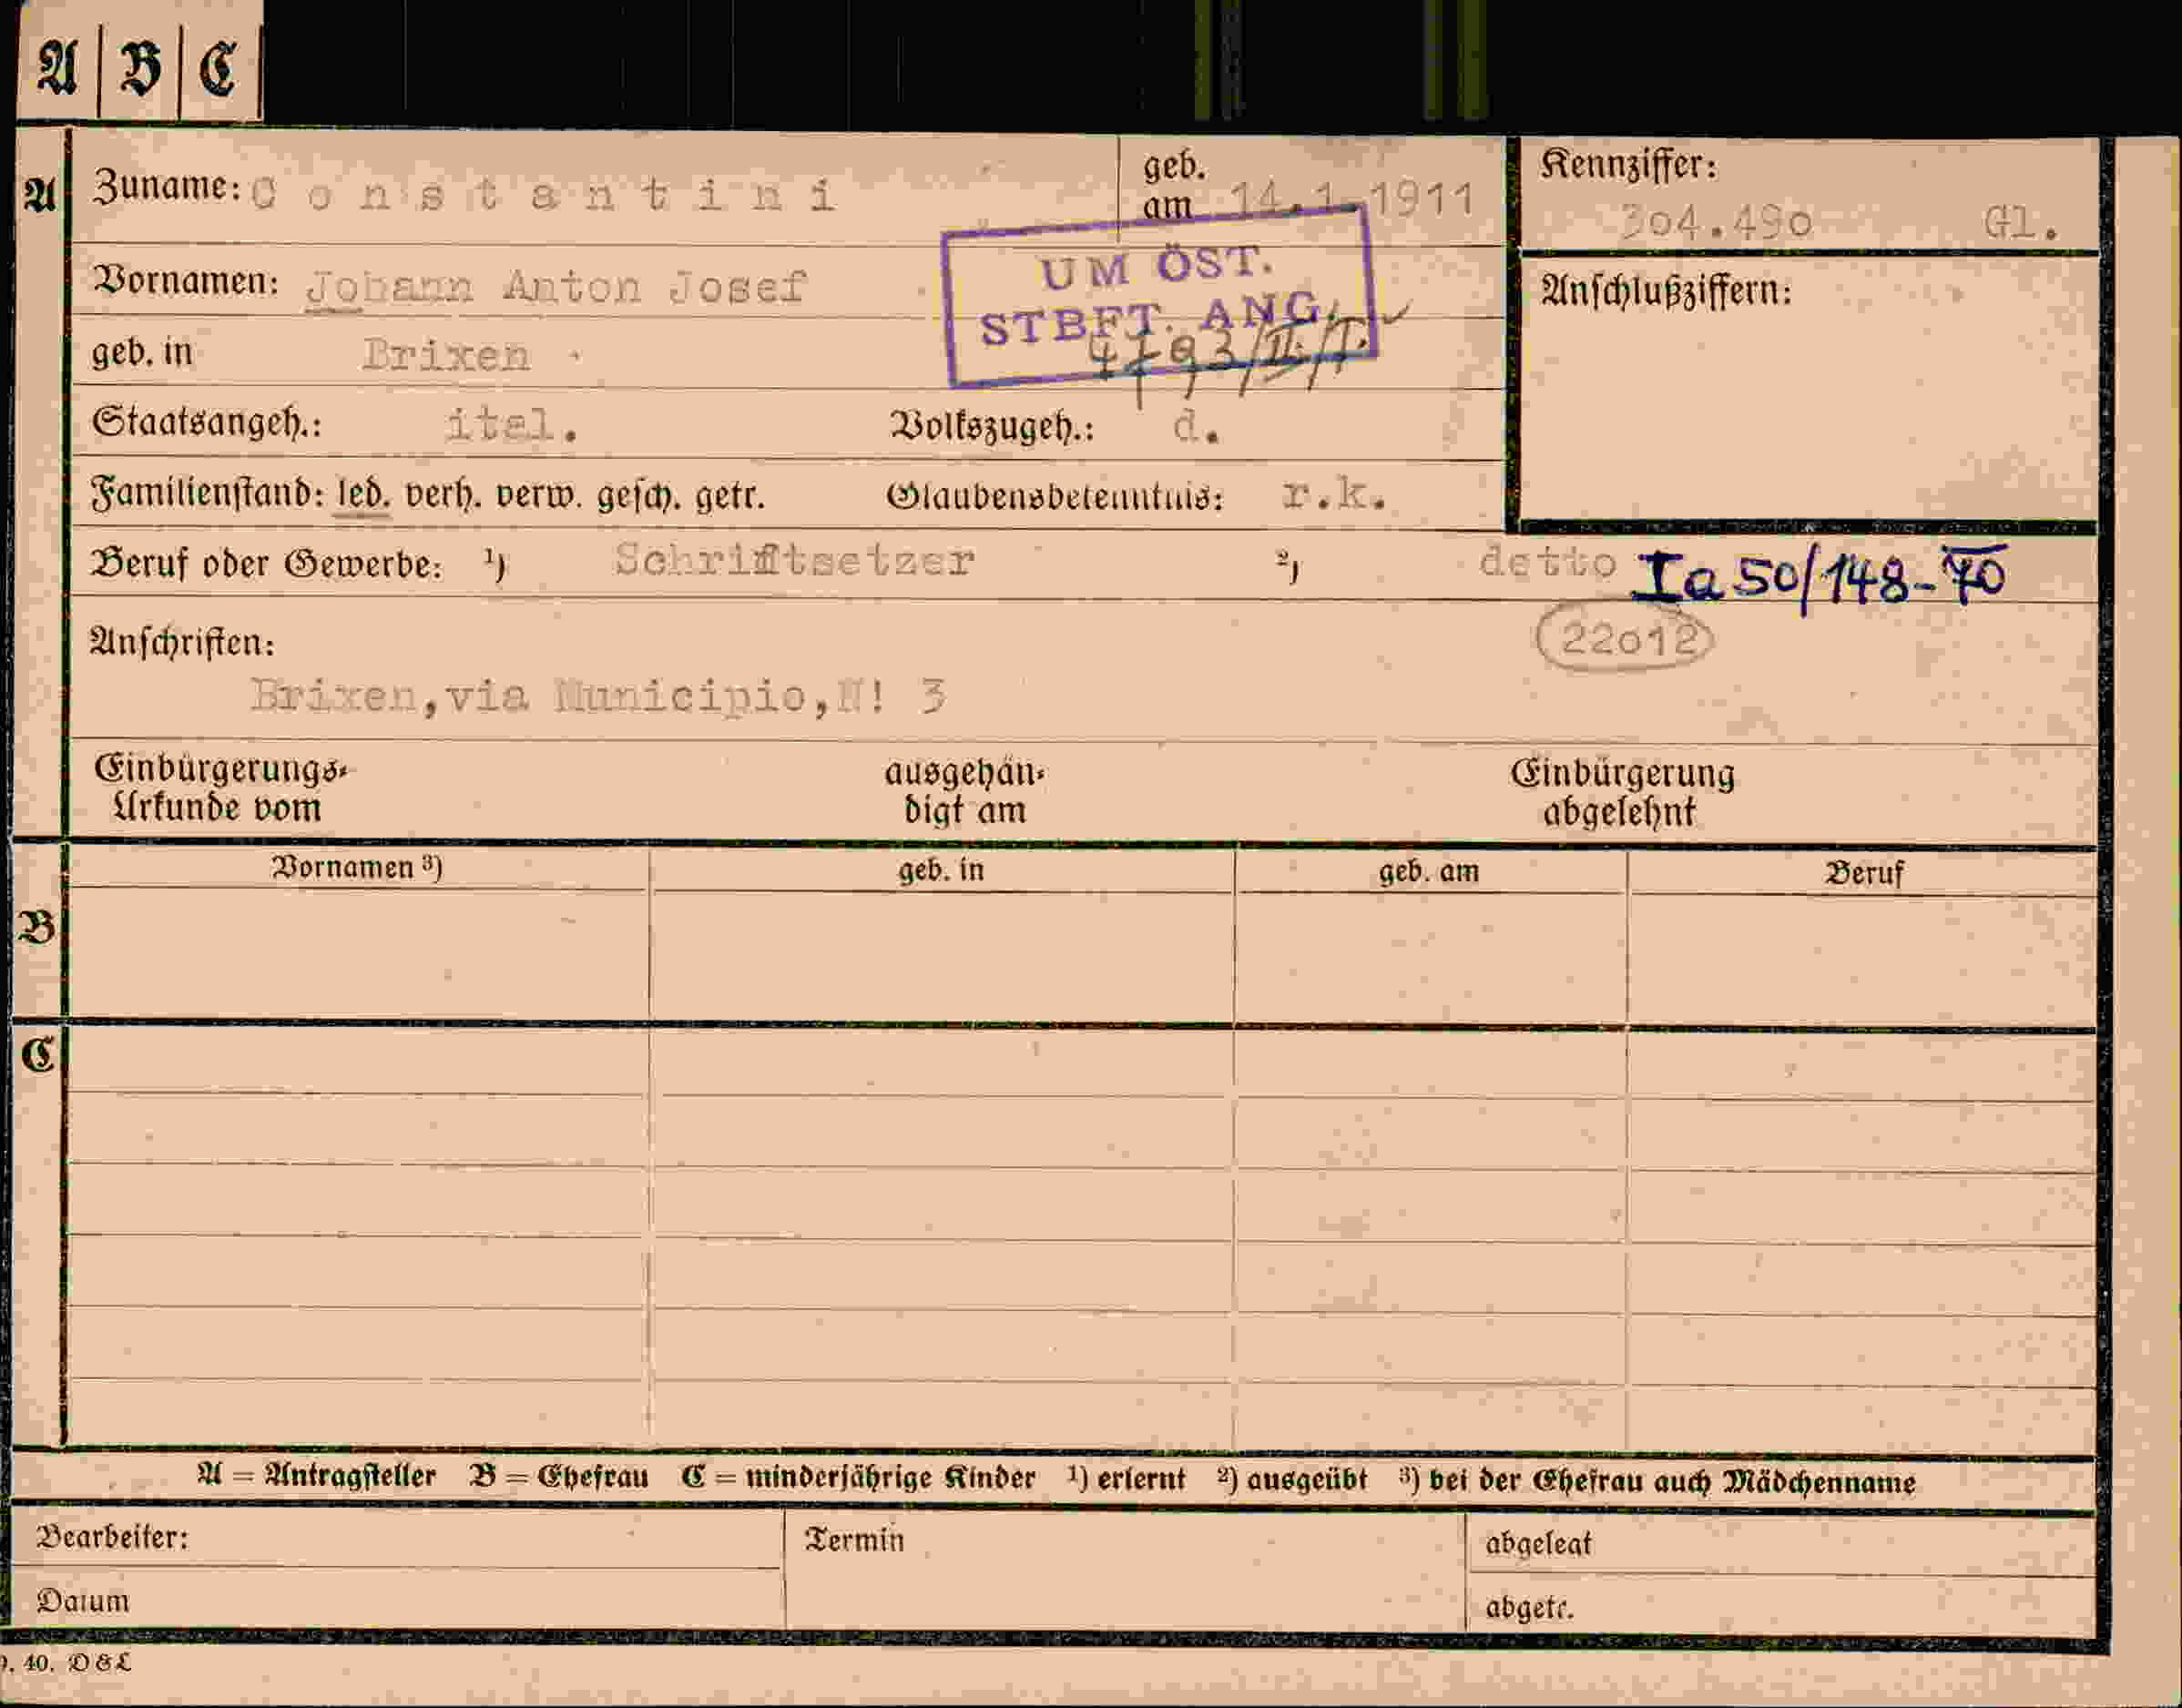 A | B | C
A
Zuname: Constantini
geb. am 14.1.1911
Kennziffer:
304.490 Gl.
Vornamen: Johann Anton Josef
UM ÖST.
STBFT. ANG.
Anschlußziffern:
geb. in Brixen
Staatsangeh.: ital. Volkszugeh.: d.
Familienstand: led. verh. verw. gesch. getr. Glaubensbekenntnis: r.k.
Beruf oder Gewerbe: 1) Schriftsetzer 2) detto Ia 50/148-70
Anschriften: 22012
Brixen, via Municipio, N! 3
Einbürgerungs- ausgehän- Einbürgerung
Urkunde vom digt am abgelehnt
Vornamen 3) geb. in geb. am Beruf
B
C
A = Antragsteller B = Ehefrau C = minderjährige Kinder 1) erlernt 2) ausgeübt 3) bei der Ehefrau auch Mädchenname
Bearbeiter: Termin abgelegt
Datum abgetr.
40. D & L